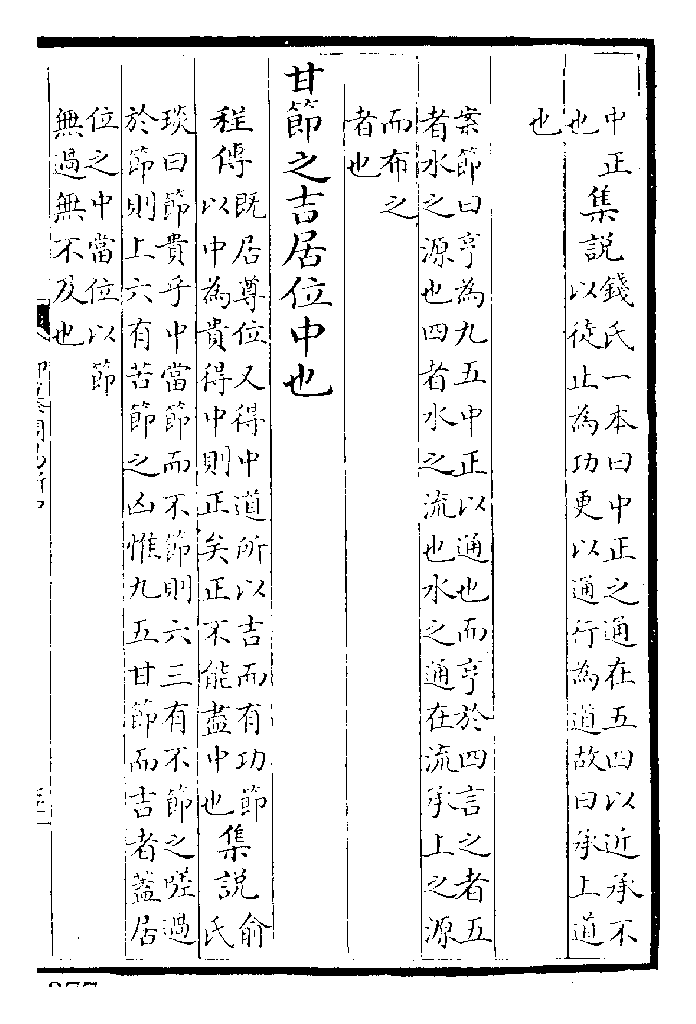 中正
也
集說
錢氏一本曰中正之通在五四以近承不
以徒止為功更以通行為道故曰承上道
也
案節曰亨為九五中正以通也而亨於四言之者五
者水之源也四者水之流也水之通在流承上之源
而布之
者也
甘節之吉居位中也
程傳
既居尊位又得中道所以吉而有功節
以中為貴得中則正矣正不能盡中也
集說
俞
氏
琰曰節貴乎中當節而不節則六三有不節之嗟過
於節則上六有苦節之凶惟九五甘節而吉者蓋居
位之中當位以節
無過無不及也